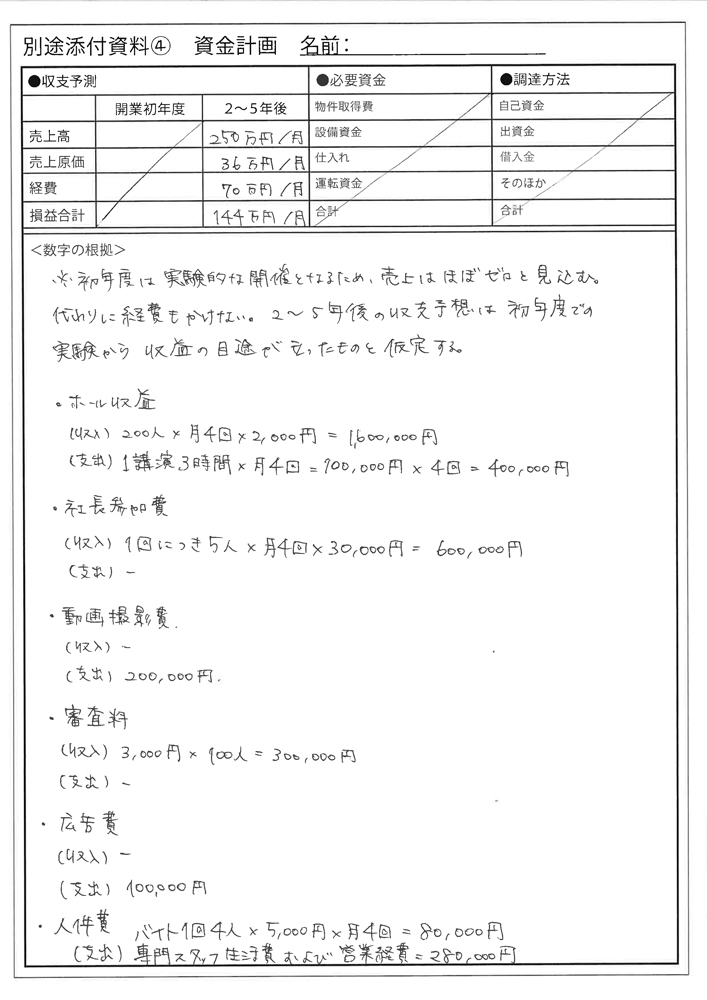 別途添付資料④　資金計画　名前：
●収支予測　●必要資金　●調達方法
開業初年度　2～5年後　物件取得費　自己資金
売上高　250万円/月　設備資金　出資金
売上原価　36万円/月　仕入れ　借入金
経費　70万円/月　運転資金　そのほか
損益合計　144万円/月　合計　合計
＜数字の根拠＞
※初年度は実験的な開催となるため、売上はほぼゼロと見込む。
代わりに経費もかけない。2～5年後の収支予想は初年度での
実験から収益の目途が立ったものと仮定する。
・ホール収益
(収入) 200人×月4回×2,000円＝1,600,000円
(支出) 1講演3時間×月4回＝100,000円×4回＝400,000円
・社長参加費
(収入) 1回につき5人×月4回×30,000円＝600,000円
(支出) －
・動画撮影費.
(収入) －
(支出) 200,000円.
・審査料
(収入) 3,000円×100人＝300,000円
(支出) －
・広告費
(収入) －
(支出) 100,000円
・人件費　バイト1回4人×5,000円×月4回＝80,000円
(支出) 専門スタッフ生活費および営業経費＝280,000円